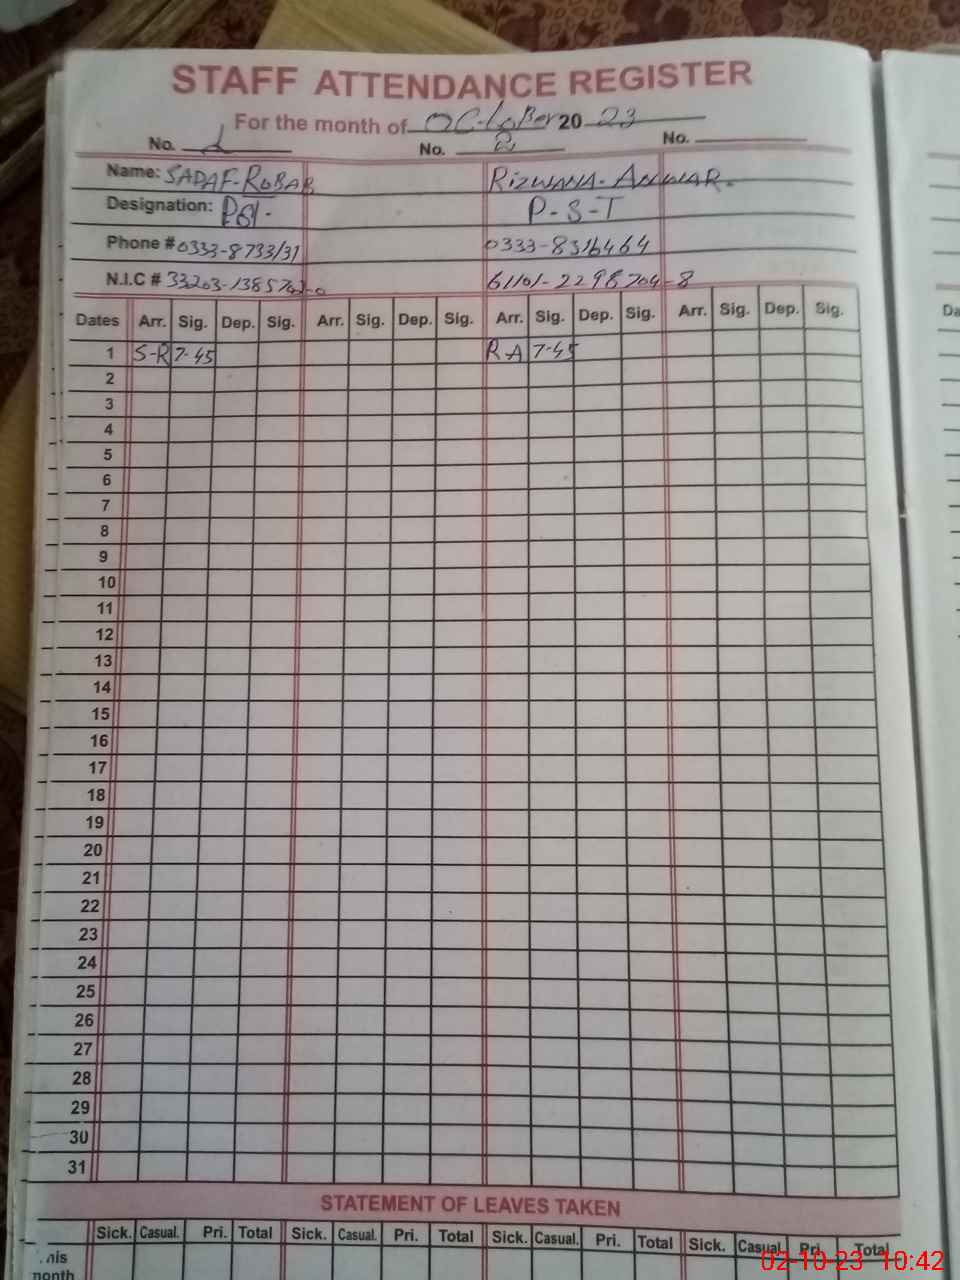 STAFF ATTENDANCE REGISTER
For the month of October 20 23
No. 1 No. 2 No.
Name: SADAF-RUBAB RIZWANA-ANWAR.
Designation: P-S-T
Phone # 0333-8733131 0333-8316464
N.I.C # 33203-1385702-0 61101-2298704-8
Dates Arr. Sig. Dep. Sig. Arr. Sig. Dep. Sig. Arr. Sig. Dep. Sig. Arr. Sig. Dep. Sig.
1 S-R 7-45 RA 7-45
2
3
4
5
6
7
8
9
10
11
12
13
14
15
16
17
18
19
20
21
22
23
24
25
26
27
28
29
30
31
STATEMENT OF LEAVES TAKEN
Sick. Casual. Pri. Total Sick. Casual. Pri. Total Sick. Casual. Pri. Total Sick. Casual. Pri. Total
02-10-23 10:42